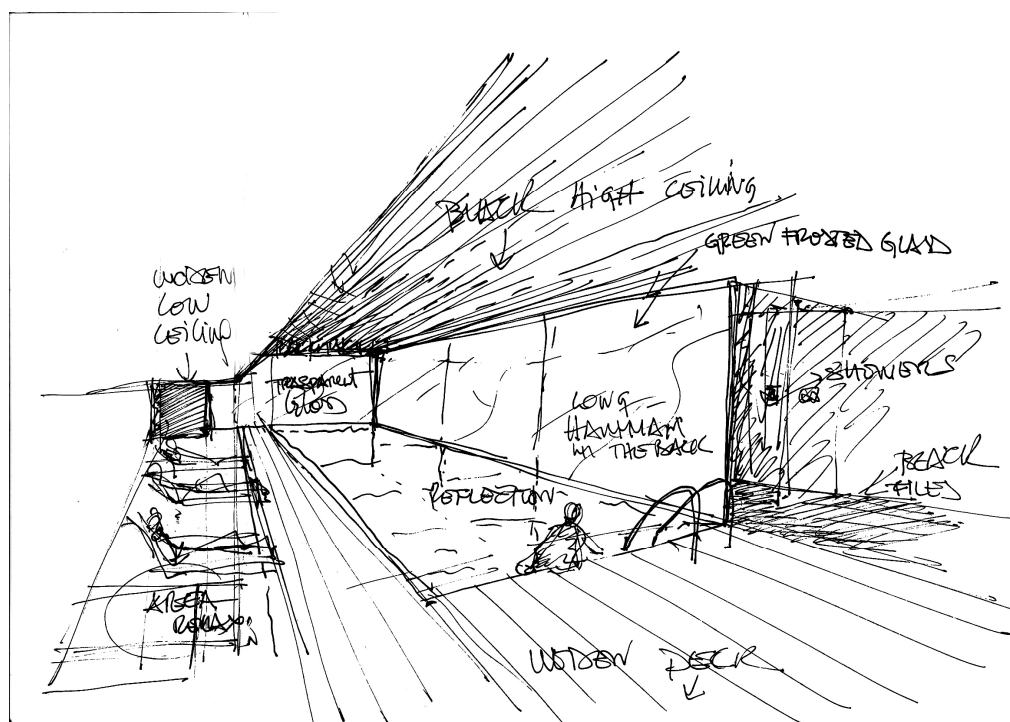 BLACK HIGH CEILING
GREEN FROSTED GLASS
WOODEN
LOW
CEILING
TRASPARENT
GLASS
LONG
HAMMAM
IN THE BACK
SHOWERS
BLACK
TILES
REFLECTION
AREA
RELAX
WOODEN DECK